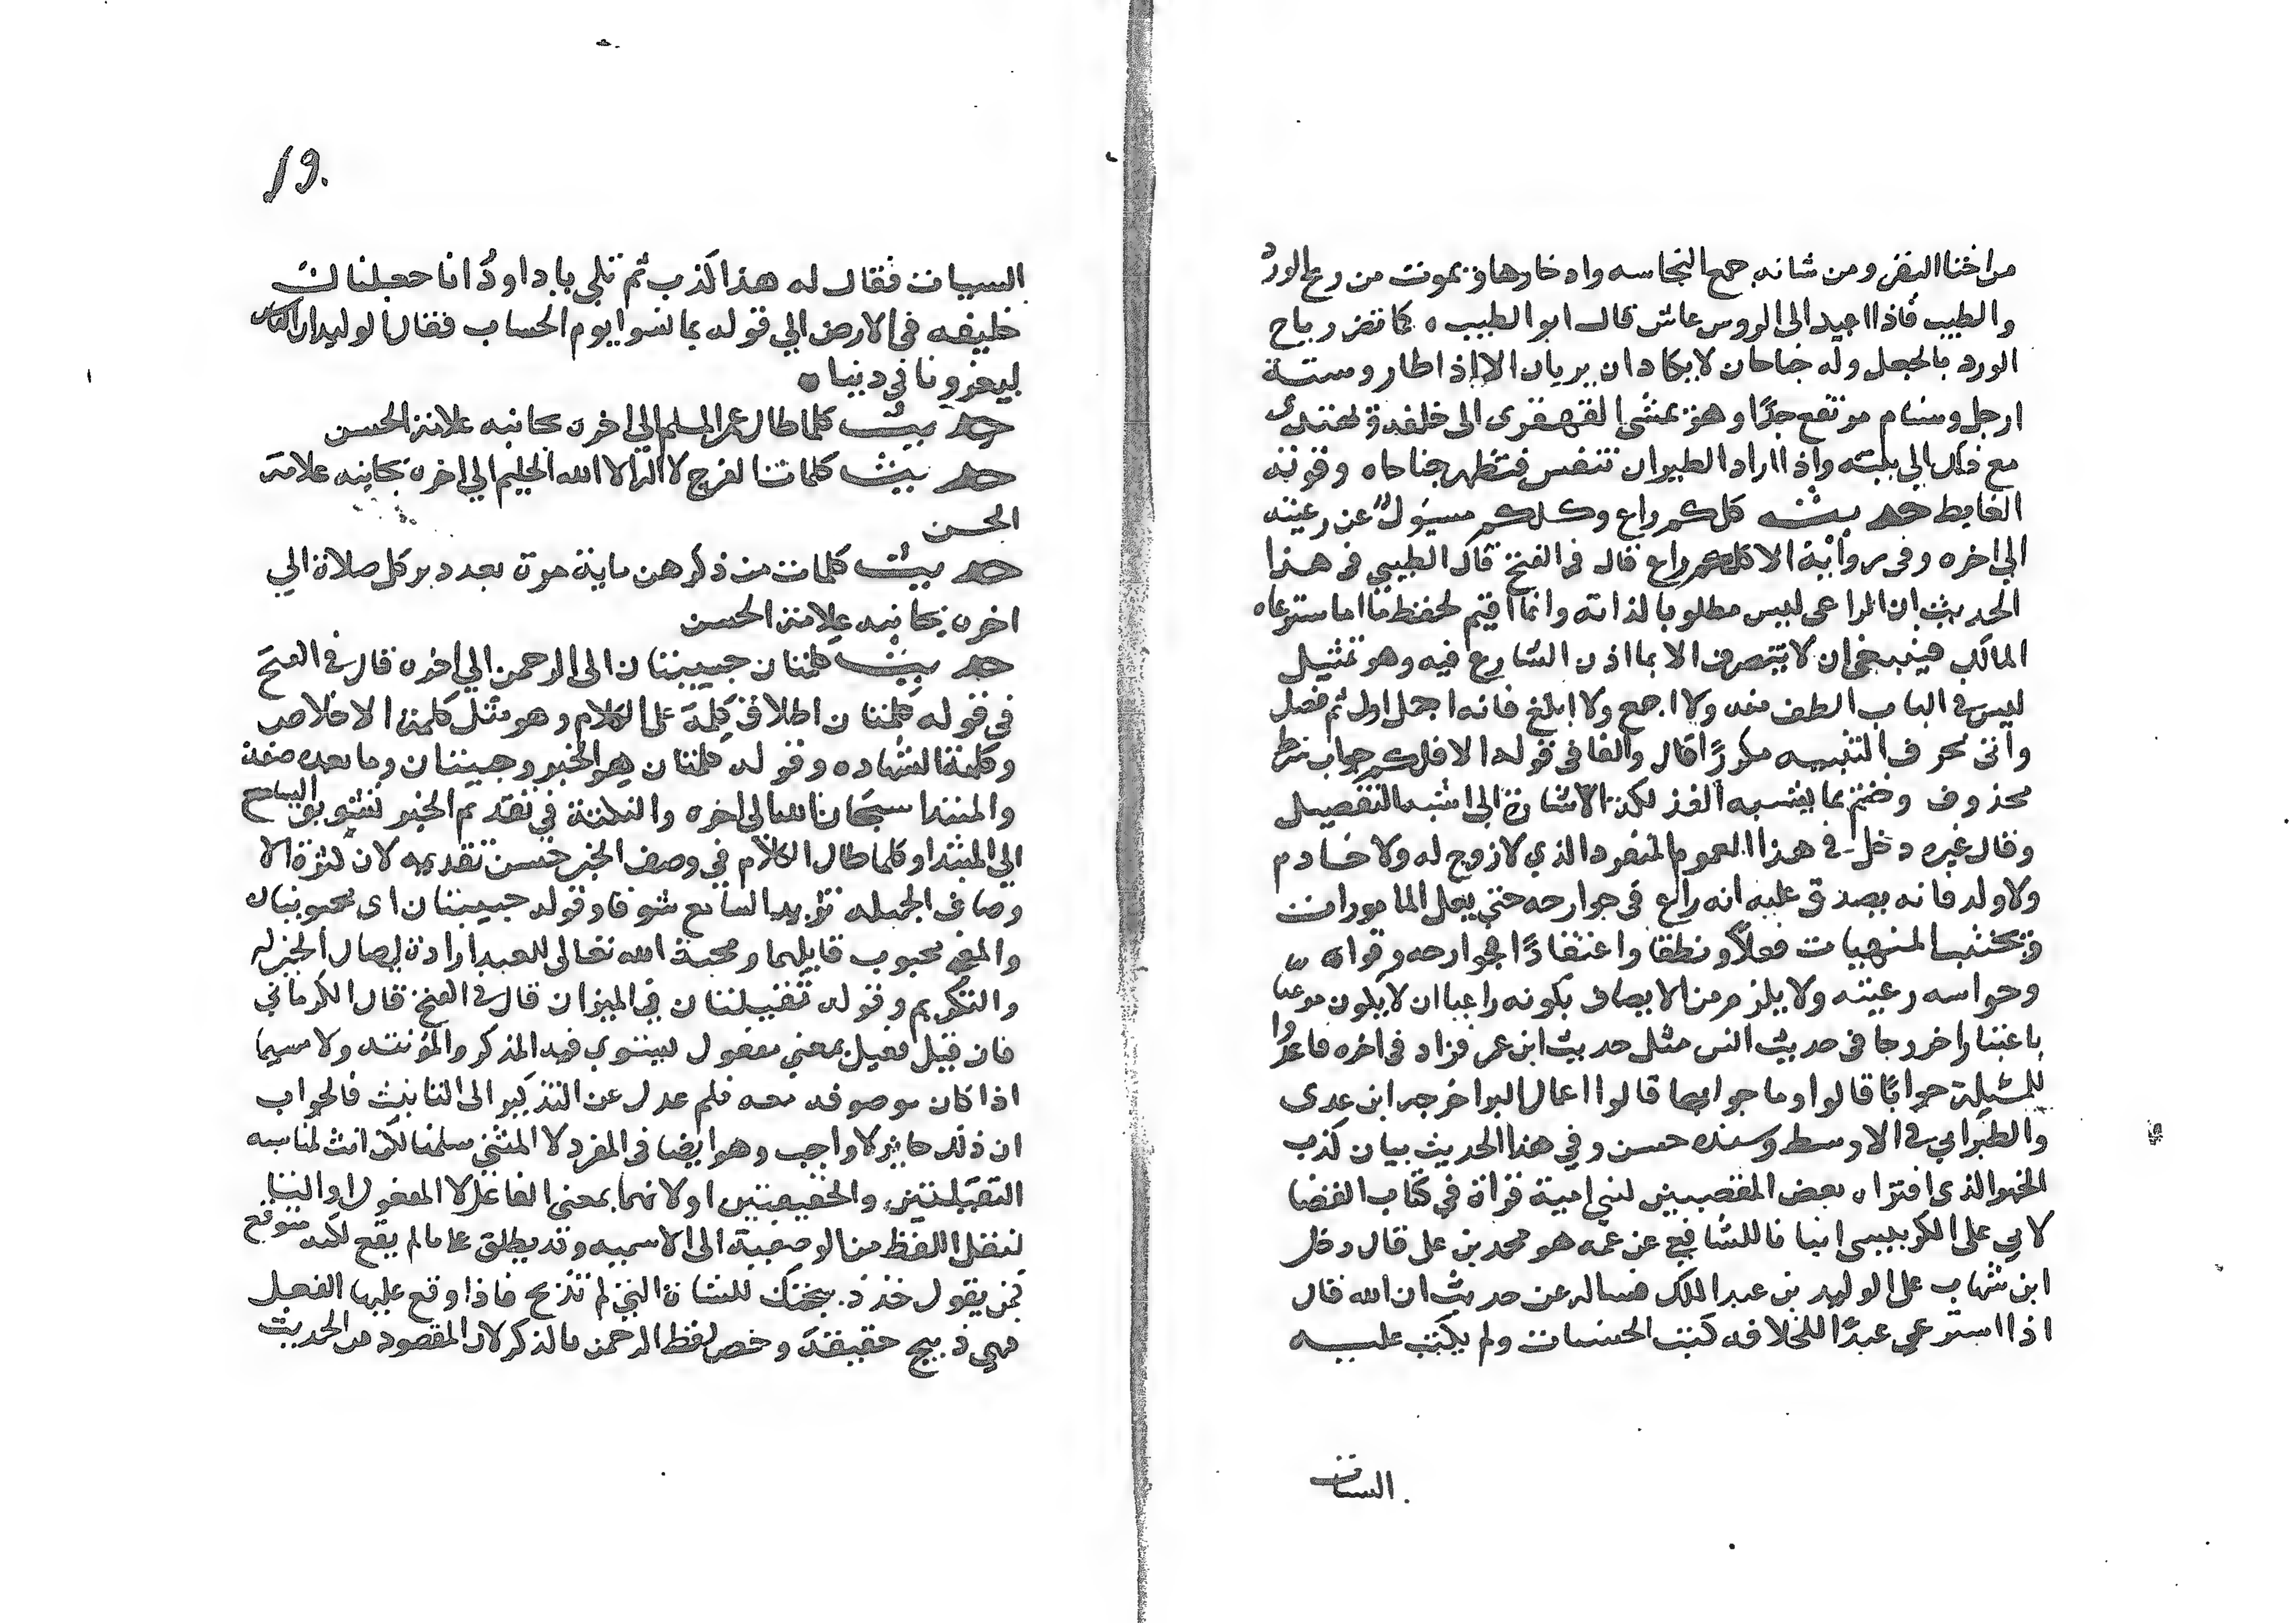 من اخثا البقر ومن شانه جمع النجاسه وادخارها ويموت من ريح الورد
والطيب فاذا اعيد الى الروس عاش قال ابو الطيب ه كما تضر رياح
الورد بالجعل وله جناحان لا يكادان يريان الا اذا طار وستة
ارجل وسنام مرتفع جدًا وهو يمشي القهقرى الى خلفه ويهتدى
مع ذلك الي بيته واذا اراد الطيران تنفس فتظهر جناحاه وقوته
الغايط حديث كلكم راع وكلكم مسؤل عن رعيته
الي اخره وفى رواية الا كلكم راع قال فى الفتح قال الطيبي فى هذا
الحديث ان الراعى ليس مطلوبا لذاته وانما اقيم لحفظ ما استرعاه
المالك فينبغي ان لا يتصرف الا بما اذن الشارع فيه وهو تمثيل
ليس فى الباب الطف منه ولا اجمع ولا ابلغ فانه اجمل اولا ثم فصل
واتى بحرف التنبيه مكررًا قال والفا فى قوله الا فكلكم جواب شرط
محذوف وختم بما يشبه الفذلكة الاشارة الى اشبه التفصيل
وقال غيره دخل فى هذا العموم المنفرد الذي لا زوج له ولا خادم
ولا ولد فانه يصدق عليه انه راع فى جوارحه حتى يعمل المامورات
ويجتنب المنهيات فعلاً ونطقا واعتقادًا فجوارحه وقواه
وحواسه رعيته ولا يلزم من الاتصاف بكونه راعيا ان لا يكون مرعيا
باعتبار اخر وجا فى حديث انس مثل حديث ابن عمر فزاد فى اخره فاعدوا
للمسيلة جوابًا قالوا وما جوابها قالوا اعمال البر اخرجه ابن عدى
والطبراني فى الاوسط وسنده حسن وفي هذا الحديث بيان كذب
الخبر الذى افتراه بعض المتعصبين لبني امية قراة في كتاب القضا
لابي على الكرابيسى انبانا الشافعي عن عمه هو محمد بن على قال دخل
ابن شهاب على الوليد بن عبد الملك فساله عن حديث ان الله قال
اذا استرعي عبدًا للخلافه كتبت الحسنات ولم يكتب عليه
السيات
19.
السيات فقال له هذا كذب ثم تلى يا داود انا جعلناك
خليفه فى الارض الي قوله بما نسوا يوم الحساب فقال الوليد ان الناس
ليغرونا في دنيا
حديث كلما طال عمر المسلم الي اخره بجانبه علامة الحسن
حديث كلمات الفرج لا اله الا الله الحليم الي اخره بجانبه علامة
الحسن
حديث كلمات من ذكرهن ماية مرة بعد دبر كل صلاة الي
اخره بجانبه علامة الحسن
حديث كلمتان حبيبتان الى الرحمن الي اخره قال فى الفتح
في قوله كلمتان اطلاق كلمة على الكلام وهو مثل كلمة الاخلاص
وكلمة الشهاده وقوله كلمتان هو الخبر وحبيبتان وما بعده صفة
والمبتدا سبحان الله الى اخره والنكتة في تقديم الخبر تشويق السامع
الي المبتدا وكلما طال الكلام في وصف الخبر حسن تقديمه لان كثرة الا
وصاف الجميله تزيد السامع شوقا وقوله حبيبتان اى محبوبتان
والمعني محبوب قايلهما ومحبة الله تعالى للعبد ارادة ايصال الخير له
والتكريم وقوله ثقيلتان في الميزان قال فى الفتح قال الكرماني
فان قيل فعيل بمعنى مفعول يستوي فيه المذكر والمؤنث ولا سيما
اذا كان موصوفه معه فلم عدل عن التذكير الى التانيث فالجواب
ان ذلك جايز لا واجب وهو ايضا فى المفرد لا المثنى سلمنا لكن انث لمناسبه
الثقيلتين والخفيفتين او لانها بمعنى الفاعل لا المفعول او التا
لنقل اللفظ من الوصفية الى الاسميه وقد يطلق على ما لم يقع لكنه متوقع
كمن يقول خذ ذبيحتك للشاة التي لم تذبح فاذا وقع عليها الفعل
فهي ذبيح حقيقة وخص لفظ الرحمن بالذكر لان المقصود من الحديث